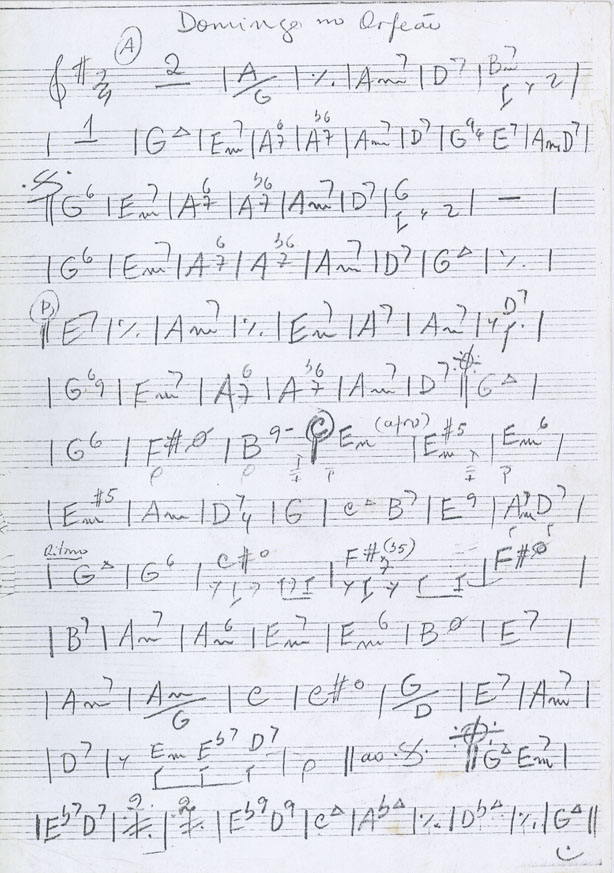 Domingo no Orfeão
A 2/4 2 | A/G | ٪ | Am7 | D7 | Bm7 |
| 1 | G∆ | Em7 | A7 6 | A7 b6 | Am7 | D7 | G9 4 E7 | Am D7 |
𝄋 G6 | Em7 | A7 6 | A7 b6 | Am7 | D7 | G | – |
| G6 | Em7 | A7 6 | A7 b6 | Am7 | D7 | G∆ | ٪ |
B E7 | ٪ | Am7 | ٪ | Em7 | A7 | Am7 | D7 |
| G6 9 | Em7 | A7 6 | A7 b6 | Am7 | D7 𝄌 || G∆ |
| G6 | F#ø | B9- C Em (afro) | Em#5 | Em6 |
| Em#5 | Am | D7 4 | G | C∆ B7 | E9 | Am7 D7 |
Ritmo
| G∆ | G6 | C#o | F#7(b5) | F#ø |
| B7 | Am7 | Am6 | Em7 | Em6 | Bø | E7 |
| Am7 | Am/G | C | C#o | G/D | E7 | Am7 |
| D7 | Em Eb7 D7 | || ao 𝄋 𝄌 || G∆ Em7 |
| Eb7 D7 | 2 ٪ | 2 ٪ | Eb9 D9 | C∆ | Ab∆ | ٪ | Db∆ | ٪ | G∆ ||